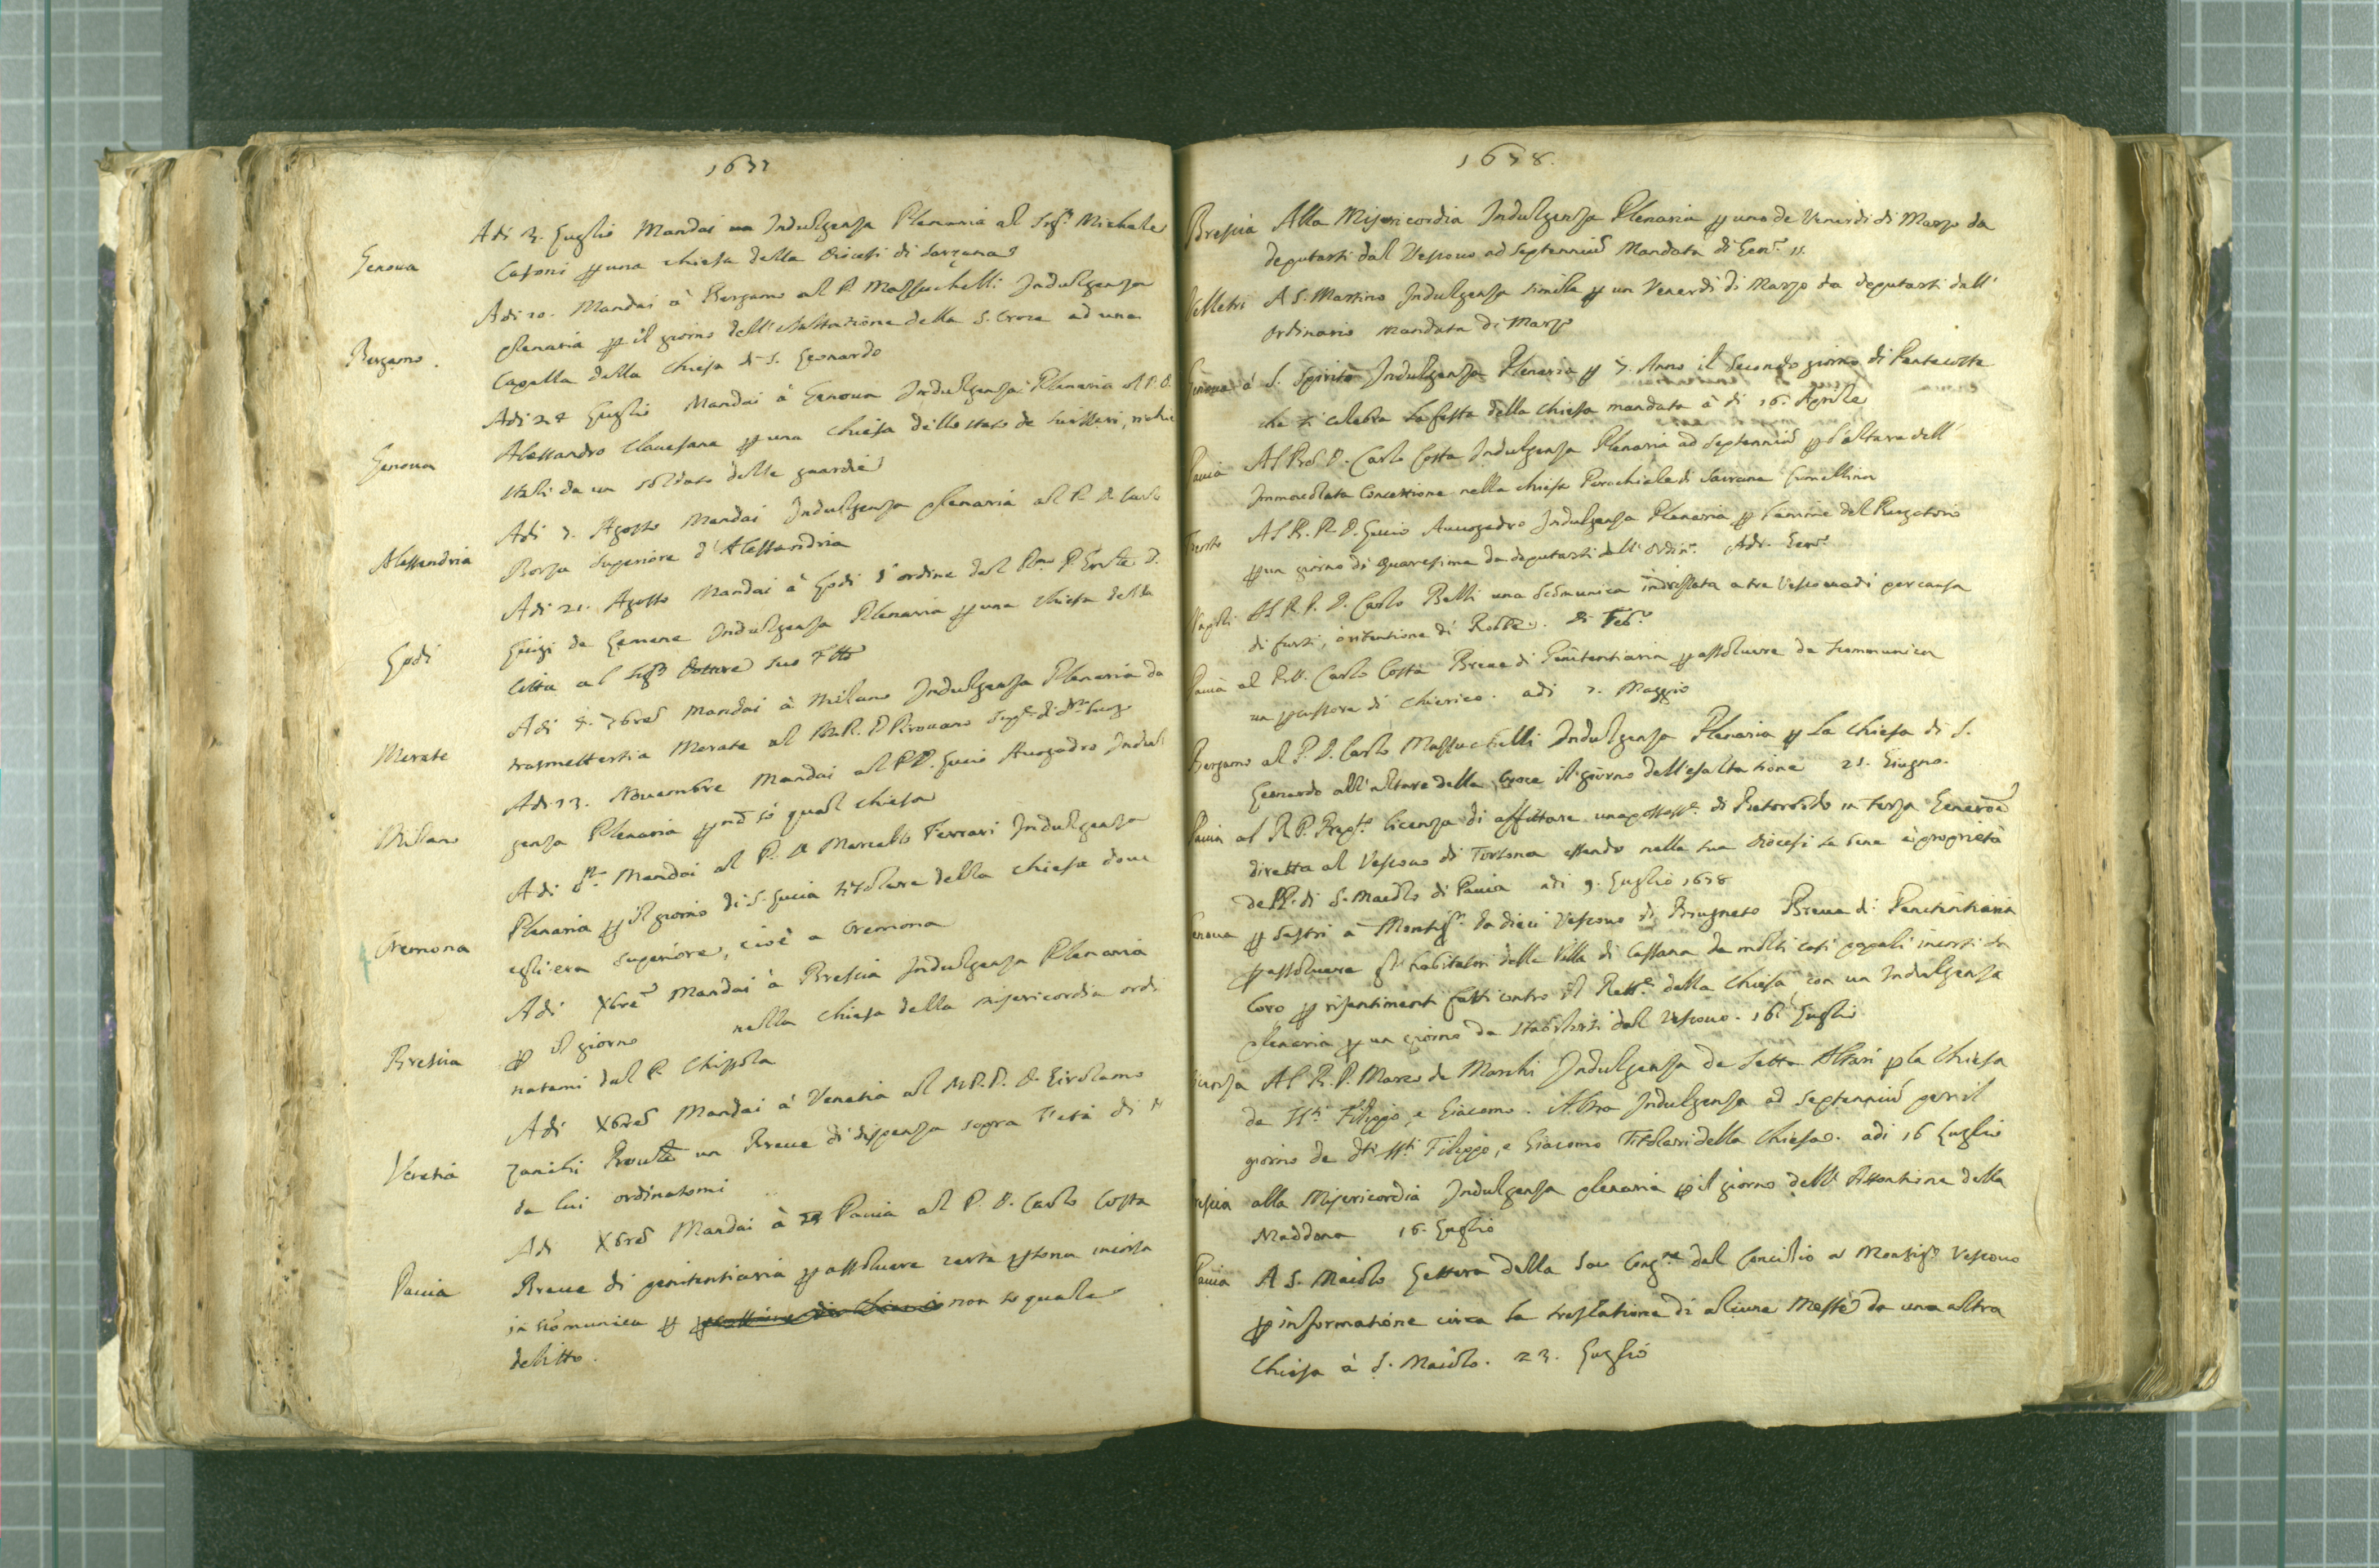 1677
Genoua
Adi 3. Luglio Mandai un Indulgenza Plenaria al Sigr. Michele
Casoni p una chiesa della Diocesi di Sarzana
Bergamo.
Adi 10. Mandai à Bergamo al P. Massuchelli Indulgenza
plenaria p il giorno dell'esaltazione della S. Croce ad una
Capella della Chiesa di S. Leonardo
Genoua
Adi 24 Luglio Mandai à Genoua Indulgenza Plenaria al P. D.
Alessandro Clauesana p una Chiesa dello stato de Suisseri,
da un soldato delle guardie
Alessandria
Adi 7. Agosto Mandai Indulgenza plenaria al P. D. Carlo
Borsa Superiore d'Alessandria
Lodi
Adi 21. Agosto Mandai à Lodi d'ordine del P.
Luigi de Lemene Indulgenza Plenaria p una Chiesa della
Città al Sigr. Dottore suo
Merate
Adi 4. 7bre Mandai à Milano Indulgenza Plenaria da
trasmettersi a Merate al M.R.P. D. Prouano
Milano
Adi 13. Nouembre Mandai al P.D. Lucio Auogadro Indul
genza Plenaria p nō só qual chiesa
Cremona
Adi Mandai al P. D. Marcello Ferrari Indulgenza
Plenaria p il giorno di S. Lucia titolare della chiesa doue
egli era superiore, cioè a Cremona
Brescia
Adi Xbre Mandai à Brescia Indulgenza Plenaria
p il giorno nella Chiesa della misericordia ordi
natami dal P. Chizzola
Venetia
Adi Xbre Mandai à Venetia al M.R.P. D. Girolamo
Zanchi un Breue di dispensa sopra l'età di
da lui ordinatomi
Pauia
Adi Xbre Mandai à Pauia al P. D. Carlo Costa
Breue di penitentiaria p assoluere certa psona incorsa
in scōmunica p non so quale
delitto.
1678.
Brescia Alla Misericordia Indulgenza Plenaria p uno de Venerdi di Marzo da
deputarsi dal Vescouo ad septenniū Mandata di Genn. 15.
Velletri A S. Martino Indulgenza simile p un Venerdi di Marzo da deputarsi dall'
Ordinario mandata di Marzo
Genoua à S. Spirito Indulgenza Plenaria p 7. Anni il secondo giorno di Pentecoste
che si celebra la festa della chiesa mandata à di 16. Aprile
Pauia Al P. D. Carlo Costa Indulgenza Plenaria ad septenniū p l'altare dell'
Immacolata Concettione nella chiesa Parochiale di Sairana Lumellina
Al R. P. D. Lucio Auuogadro Indulgenza Plenaria p l'anime del Purgatorio
p un giorno di Quaresima da deputarsi dall'Ordin. Adi. Genn.
Napoli Al R. P. D. Carlo Belli una Scōmunica indrizzata a tre Vescouadi per causa
di furti, ò ritentione di Robbe. di Feb.
Pauia al P. D. Carlo Costa Breue di Penitentiaria p assoluere da scommunica
un pcussore di Chierico. adi 7. Maggio
Bergamo al P. D. Carlo Massuchelli Indulgenza Plenaria p la Chiesa di S.
Leonardo all'altare della Croce il giorno dell'esaltatione 25. Giugno.
Pauia al R. P. Prep.to licenza di affittare una possess.e di Retorbido in terza Generōe
diretta al Vescouo di Tortona essendo nella sua Diocesi la Sena è proprietà
de PP. di S. Maiolo di Pauia adi 9. Luglio 1678
Genoua p Sestri à Monsigr. da dieci Vescouo di Brugneto Breue di Penitentiaria
p assoluere gl'habitatori della Villa di Cassana da molti casi papali incorsi da
loro p risentimenti fatti contro il Rett.e della Chiesa, con un Indulgenza
plenaria p un giorno da stabilirsi dal Vescouo. 16. Luglio
Al R. P. Marco de Marchi Indulgenza de sette Altari p la Chiesa
de SS.ti Filippo, e Giacomo. Altra Indulgenza ad septenniū per il
giorno de d.ti SS.ti Filippo, e Giacomo Titolari della Chiesa. adi 16 Luglio
Brescia alla Misericordia Indulgenza plenaria p il giorno dell'Assontione della
Maddona 16. Luglio
Pauia A S. Maiolo Lettera della Sac. Cong.ne del Concilio a Monsigr. Vescouo
p informatione circa la traslatione di alcune Messe da una altra
Chiesa à S. Maiolo. 23. Luglio